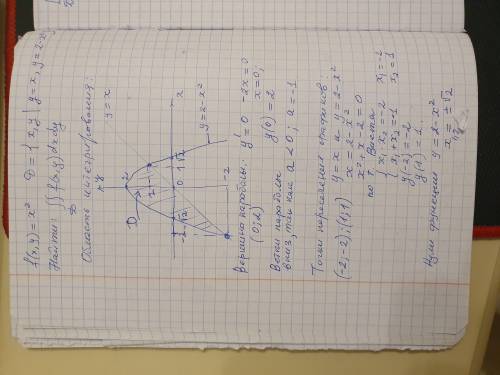 f(x,y) = x² D = { x,y | y = x, y = 2-x
Найти: ∬ f(x,y) dx dy
D
Область интегрирования:
y = x
y
x
2
D
1
-2 -√2 0 1 √2
y = 2-x²
-2
Вершина параболы: y' = 0 -2x = 0
(0; 2) x = 0;
y(0) = 2
Ветки параболы
вниз, так как a < 0; a = -1
Точки пересечения графиков:
(-2; -2); (1; 1) y = x и y = 2-x²
x = 2-x²
x² + x - 2 = 0
по т. Виета
{ x₁ · x₂ = -2 x₁ = -2
x₁ + x₂ = -1 x₂ = 1
y(-2) = -2
y(1) = 1
Нули функции y = 2-x²
x₁,₂ = ±√2